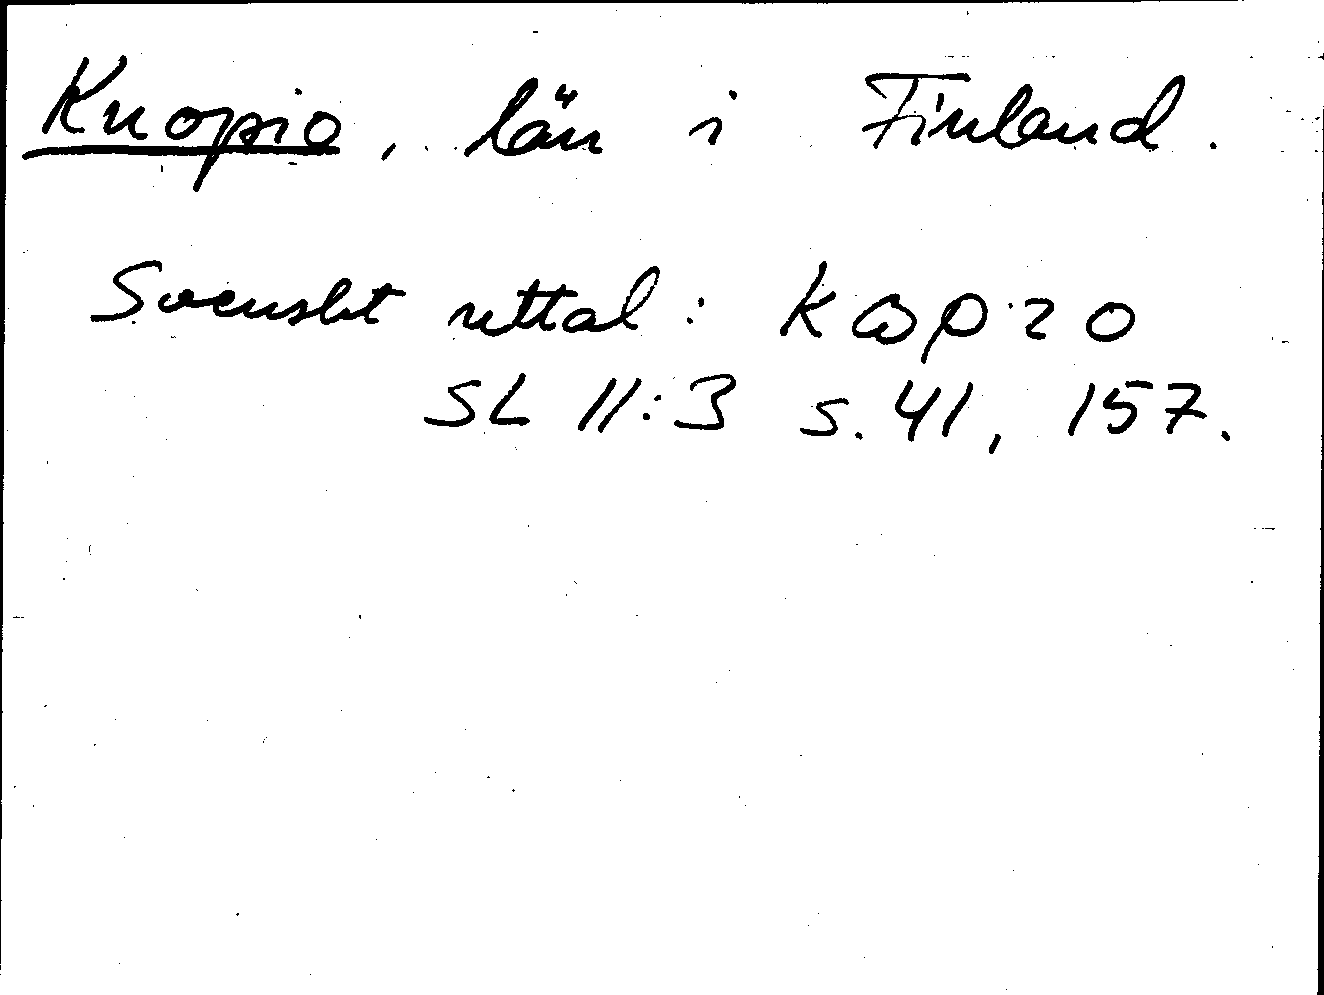 Kuopio, län i Finland.
Svenskt uttal:
SL 11:3 s. 41, 157.